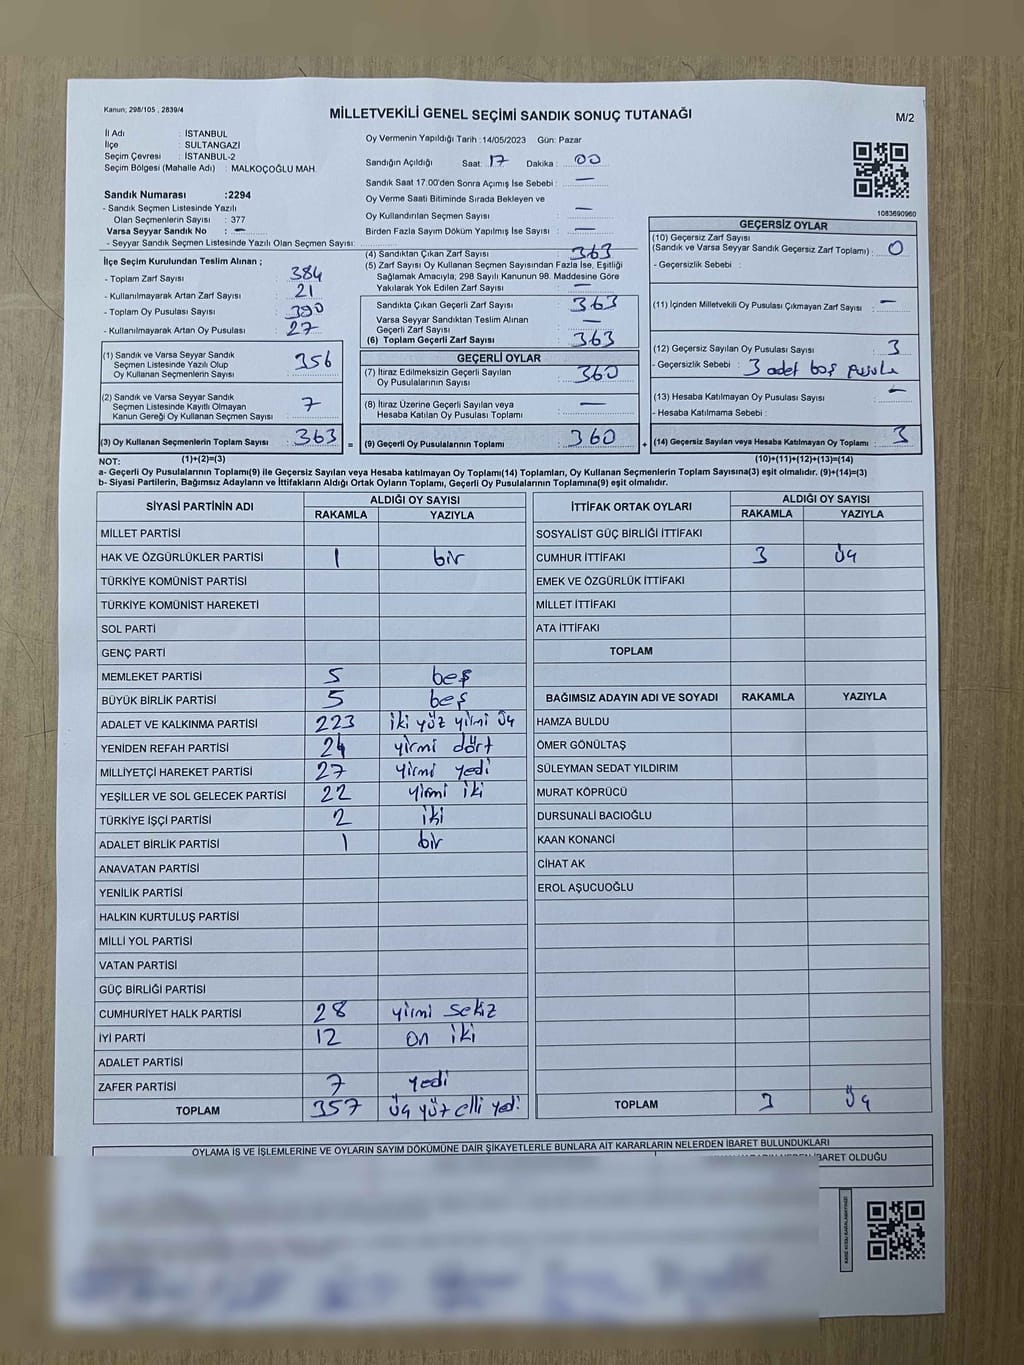 Kanun; 298/105 , 2839/4
MİLLETVEKİLİ GENEL SEÇİMİ SANDIK SONUÇ TUTANAĞI
M/2
İl Adı : İSTANBUL
İlçe : SULTANGAZİ
Seçim Çevresi : İSTANBUL-2
Seçim Bölgesi (Mahalle Adı) : MALKOÇOĞLU MAH.
Oy Vermenin Yapıldığı Tarih : 14/05/2023 Gün: Pazar
Sandığın Açıldığı Saat: 17 Dakika : 00
Sandık Saat 17.00'den Sonra Açımış İse Sebebi : —
Oy Verme Saati Bitiminde Sırada Bekleyen ve
Oy Kullandırılan Seçmen Sayısı : —
Birden Fazla Sayım Döküm Yapılmış İse Sayısı : —
1083690960
Sandık Numarası :2294
- Sandık Seçmen Listesinde Yazılı
Olan Seçmenlerin Sayısı : 377
Varsa Seyyar Sandık No : —
- Seyyar Sandık Seçmen Listesinde Yazılı Olan Seçmen Sayısı:
İlçe Seçim Kurulundan Teslim Alınan ;
- Toplam Zarf Sayısı : 384
- Kullanılmayarak Artan Zarf Sayısı : 21
- Toplam Oy Pusulası Sayısı : 390
- Kullanılmayarak Artan Oy Pusulası : 27
(1) Sandık ve Varsa Seyyar Sandık
Seçmen Listesinde Yazılı Olup
Oy Kullanan Seçmenlerin Sayısı : 356
(2) Sandık ve Varsa Seyyar Sandık
Seçmen Listesinde Kayıtlı Olmayan
Kanun Gereği Oy Kullanan Seçmen Sayısı : 7
(3) Oy Kullanan Seçmenlerin Toplam Sayısı : 363 =
(1)+(2)=(3)
(4) Sandıktan Çıkan Zarf Sayısı : 363
(5) Zarf Sayısı Oy Kullanan Seçmen Sayısından Fazla İse, Eşitliği
Sağlamak Amacıyla; 298 Sayılı Kanunun 98. Maddesine Göre
Yakılarak Yok Edilen Zarf Sayısı : —
Sandıkta Çıkan Geçerli Zarf Sayısı : 363
Varsa Seyyar Sandıktan Teslim Alınan
Geçerli Zarf Sayısı : —
(6) Toplam Geçerli Zarf Sayısı : 363
GEÇERLİ OYLAR
(7) İtiraz Edilmeksizin Geçerli Sayılan
Oy Pusulalarının Sayısı : 360
(8) İtiraz Üzerine Geçerli Sayılan veya
Hesaba Katılan Oy Pusulası Toplamı : —
(9) Geçerli Oy Pusulalarının Toplamı : 360 +
GEÇERSİZ OYLAR
(10) Geçersiz Zarf Sayısı
(Sandık ve Varsa Seyyar Sandık Geçersiz Zarf Toplamı) : 0
- Geçersizlik Sebebi :
(11) İçinden Milletvekili Oy Pusulası Çıkmayan Zarf Sayısı : —
(12) Geçersiz Sayılan Oy Pusulası Sayısı : 3
- Geçersizlik Sebebi : 3 adet boş pusula
(13) Hesaba Katılmayan Oy Pusulası Sayısı : —
- Hesaba Katılmama Sebebi :
(14) Geçersiz Sayılan veya Hesaba Katılmayan Oy Toplamı : 3
(10)+(11)+(12)+(13)=(14)
NOT:
a- Geçerli Oy Pusulalarının Toplamı(9) ile Geçersiz Sayılan veya Hesaba katılmayan Oy Toplamı(14) Toplamları, Oy Kullanan Seçmenlerin Toplam Sayısına(3) eşit olmalıdır. (9)+(14)=(3)
b- Siyasi Partilerin, Bağımsız Adayların ve İttifakların Aldığı Ortak Oyların Toplamı, Geçerli Oy Pusulalarının Toplamına(9) eşit olmalıdır.
SİYASİ PARTİNİN ADI ALDIĞI OY SAYISI
RAKAMLA YAZIYLA
MİLLET PARTİSİ
HAK VE ÖZGÜRLÜKLER PARTİSİ 1 bir
TÜRKİYE KOMÜNİST PARTİSİ
TÜRKİYE KOMÜNİST HAREKETİ
SOL PARTİ
GENÇ PARTİ
MEMLEKET PARTİSİ 5 beş
BÜYÜK BİRLİK PARTİSİ 5 beş
ADALET VE KALKINMA PARTİSİ 223 iki yüz yirmi üç
YENİDEN REFAH PARTİSİ 24 yirmi dört
MİLLİYETÇİ HAREKET PARTİSİ 27 yirmi yedi
YEŞİLLER VE SOL GELECEK PARTİSİ 22 yirmi iki
TÜRKİYE İŞÇİ PARTİSİ 2 iki
ADALET BİRLİK PARTİSİ 1 bir
ANAVATAN PARTİSİ
YENİLİK PARTİSİ
HALKIN KURTULUŞ PARTİSİ
MİLLİ YOL PARTİSİ
VATAN PARTİSİ
GÜÇ BİRLİĞİ PARTİSİ
CUMHURİYET HALK PARTİSİ 28 yirmi sekiz
İYİ PARTİ 12 on iki
ADALET PARTİSİ
ZAFER PARTİSİ 7 yedi
TOPLAM 357 üç yüz elli yedi
İTTİFAK ORTAK OYLARI ALDIĞI OY SAYISI
RAKAMLA YAZIYLA
SOSYALİST GÜÇ BİRLİĞİ İTTİFAKI
CUMHUR İTTİFAKI 3 üç
EMEK VE ÖZGÜRLÜK İTTİFAKI
MİLLET İTTİFAKI
ATA İTTİFAKI
TOPLAM
BAĞIMSIZ ADAYIN ADI VE SOYADI RAKAMLA YAZIYLA
HAMZA BULDU
ÖMER GÖNÜLTAŞ
SÜLEYMAN SEDAT YILDIRIM
MURAT KÖPRÜCÜ
DURSUNALİ BACIOĞLU
KAAN KONANCİ
CİHAT AK
EROL AŞUCUOĞLU
TOPLAM 3 üç
OYLAMA İŞ VE İŞLEMLERİNE VE OYLARIN SAYIM DÖKÜMÜNE DAİR ŞİKAYETLERLE BUNLARA AİT KARARLARIN NELERDEN İBARET BULUNDUKLARI
İBARET OLDUĞU